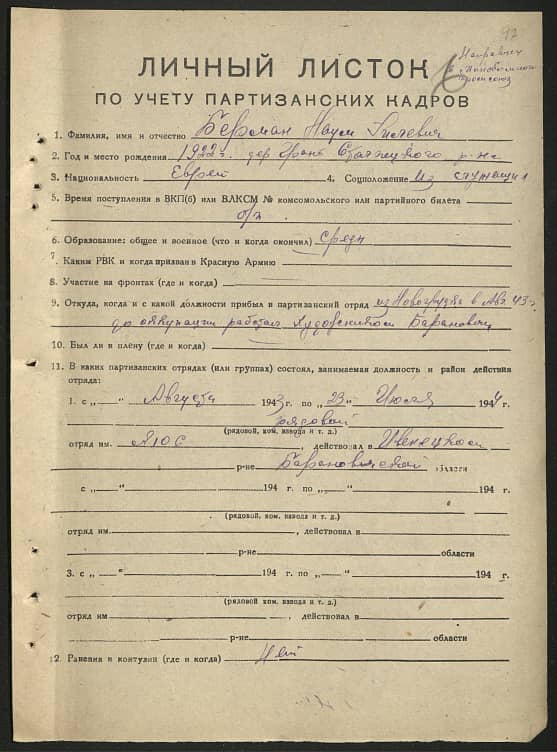 92
Направлен
в
ЛИЧНЫЙ ЛИСТОК
ПО УЧЕТУ ПАРТИЗАНСКИХ КАДРОВ
1. Фамилия, имя и отчество Берман Наум
2. Год и место рождения 1922 г. дер
3. Национальность Еврей 4. Соцположение Из служащих
5. Время поступления в ВКП(б) или ВЛКСМ № комсомольского или партийного билета
б/п
6. Образование: общее и военное (что и когда окончил) средн
7. Каким РВК и когда призван в Красную Армию
8. Участие на фронтах (где и когда)
9. Откуда, когда и с какой должности прибыл в партизанский отряд из Новогрудка в Авг. 43 г.
до оккупации работал Барановичи
10. Был ли в плену (где и когда)
11. В каких партизанских отрядах (или группах) состоял, занимаемая должность и район действия
отряда:
1. с „ " Августа 1943 г. по „23" Июля 1944 г.
рядовой
(рядовой, ком. взвода и т. д.)
отряд им. , действовал в Ивенецком
р-не Барановичской области
с „ " 194 г. по „ " 194 г.
(рядовой, ком. взвода и т. д.)
отряд им. , действовал в
р-не области
3. с „ " 194 г. по „ " 194 г.
(рядовой ком. взвода и т. д.)
отряд им. , действовал в
р-не области
12. Ранения и контузии (где и когда) Нет